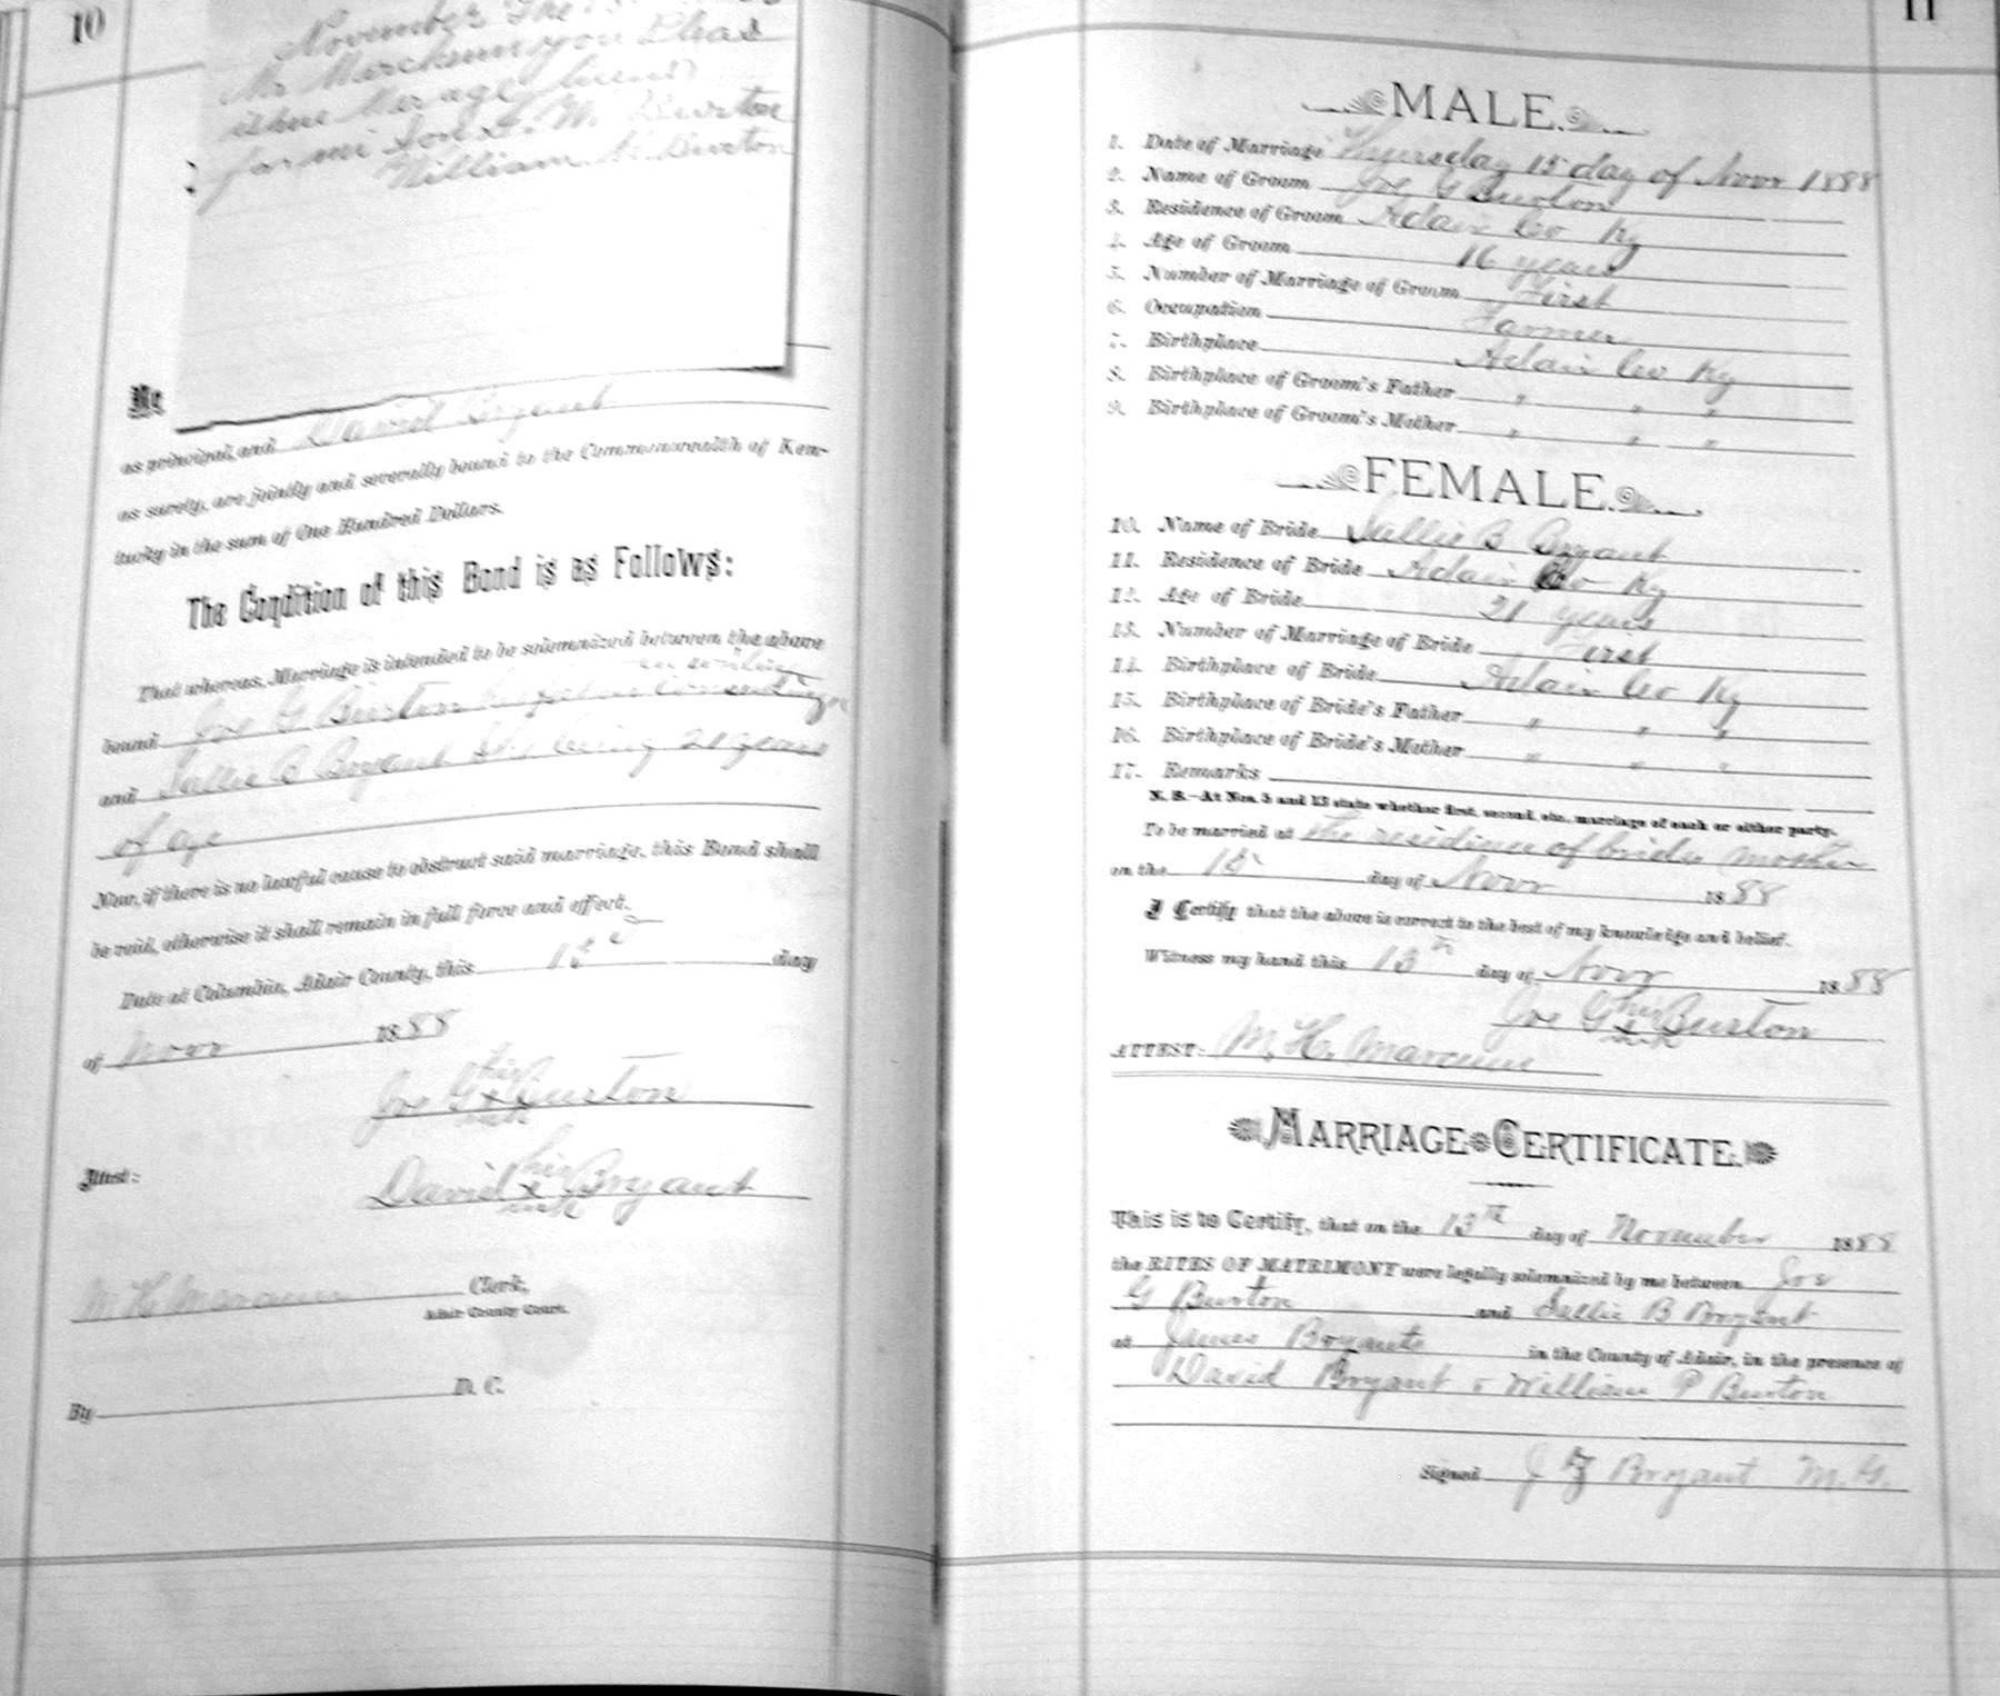 10
November the
Mr Marckum you Pleas
ishue Merage
for mi Son J. M. Burton
William N. Burton
We
as principal, and David Bryant
as surety, are jointly and severally bound to the Commonwealth of Ken-
tucky in the sum of One Hundred Dollars.
The Condition of this Bond is as Follows:
That whereas, Marriage is intended to be solemnized between the above
in writing
bound Joe G Burton his father consenting
and Sallie B Bryant She being 21 years
of age
Now, if there is no lawful cause to obstruct said marriage, this Bond shall
be void, otherwise it shall remain in full force and effect.
Date at Columbia, Adair County, this day
of Novr 1888
his
Joe G x Burton
mark
Attest:
his
David x Bryant
mark
M H Marcum Clerk,
Adair County Court.
By D. C.
11
MALE.
1. Date of Marriage Thursday 15 day of Novr 1888
2. Name of Groom Joe G Burton
3. Residence of Groom Adair Co Ky
4. Age of Groom 16 years
5. Number of Marriage of Groom First
6. Occupation Farmer
7. Birthplace Adair Co Ky
8. Birthplace of Groom's Father " " "
9. Birthplace of Groom's Mother " " "
FEMALE.
10. Name of Bride Sallie B Bryant
11. Residence of Bride Adair Co Ky
12. Age of Bride 21 years
13. Number of Marriage of Bride First
14. Birthplace of Bride Adair Co Ky
15. Birthplace of Bride's Father " " "
16. Birthplace of Bride's Mother " " "
17. Remarks
N. B.—At Nos. 5 and 13 state whether first, second, etc., marriage of each or either party.
To be married at the residence of brides mother
on the 15 day of Novr 1888
I Certify that the above is correct to the best of my knowledge and belief.
Witness my hand this 13th day of Novr 1888
his
Joe G x Burton
mark
ATTEST: M. H. Marcum
MARRIAGE CERTIFICATE.
This is to Certify, that on the 15th day of November 1888
the RITES OF MATRIMONY were legally solemnized by me between Joe
G Burton and Sallie B Bryant
at James Bryants in the County of Adair, in the presence of
David Bryant & William P Burton
Signed J Z Bryant M. G.